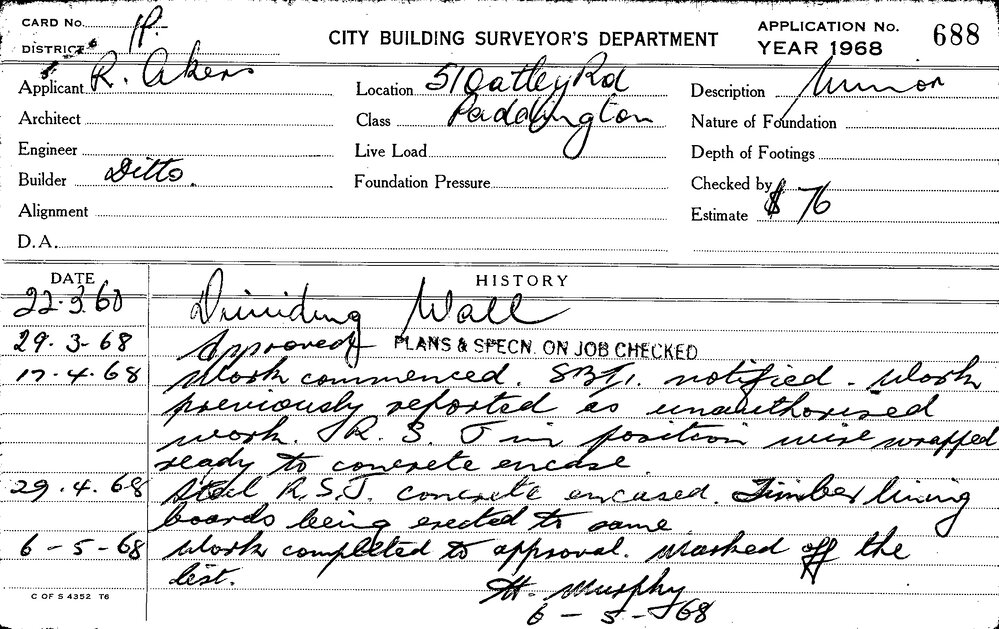 CARD No. P.
DISTRICT
CITY BUILDING SURVEYOR'S DEPARTMENT
APPLICATION No. 688
YEAR 1968
Applicant R. Akers
Location 51 Oatley Rd
Description Minor
Architect
Class Paddington
Nature of Foundation
Engineer
Live Load
Depth of Footings
Builder Ditto.
Foundation Pressure
Checked by
Alignment
Estimate $ 76
D.A.
DATE HISTORY
22.3.68 Dividing Wall
29.3.68 Approved PLANS & SPECN. ON JOB CHECKED
17.4.68 Work commenced. notified. Work
previously reported as unauthorised
work. R.S.J in position wire wrapped
ready to concrete encase.
29.4.68 Steel R.S.J. concrete encased. Timber lining
boards being erected to same
6-5-68 Work completed to approval. Marked off the
list. H. Murphy
6-5-68
C OF S 4352 T6